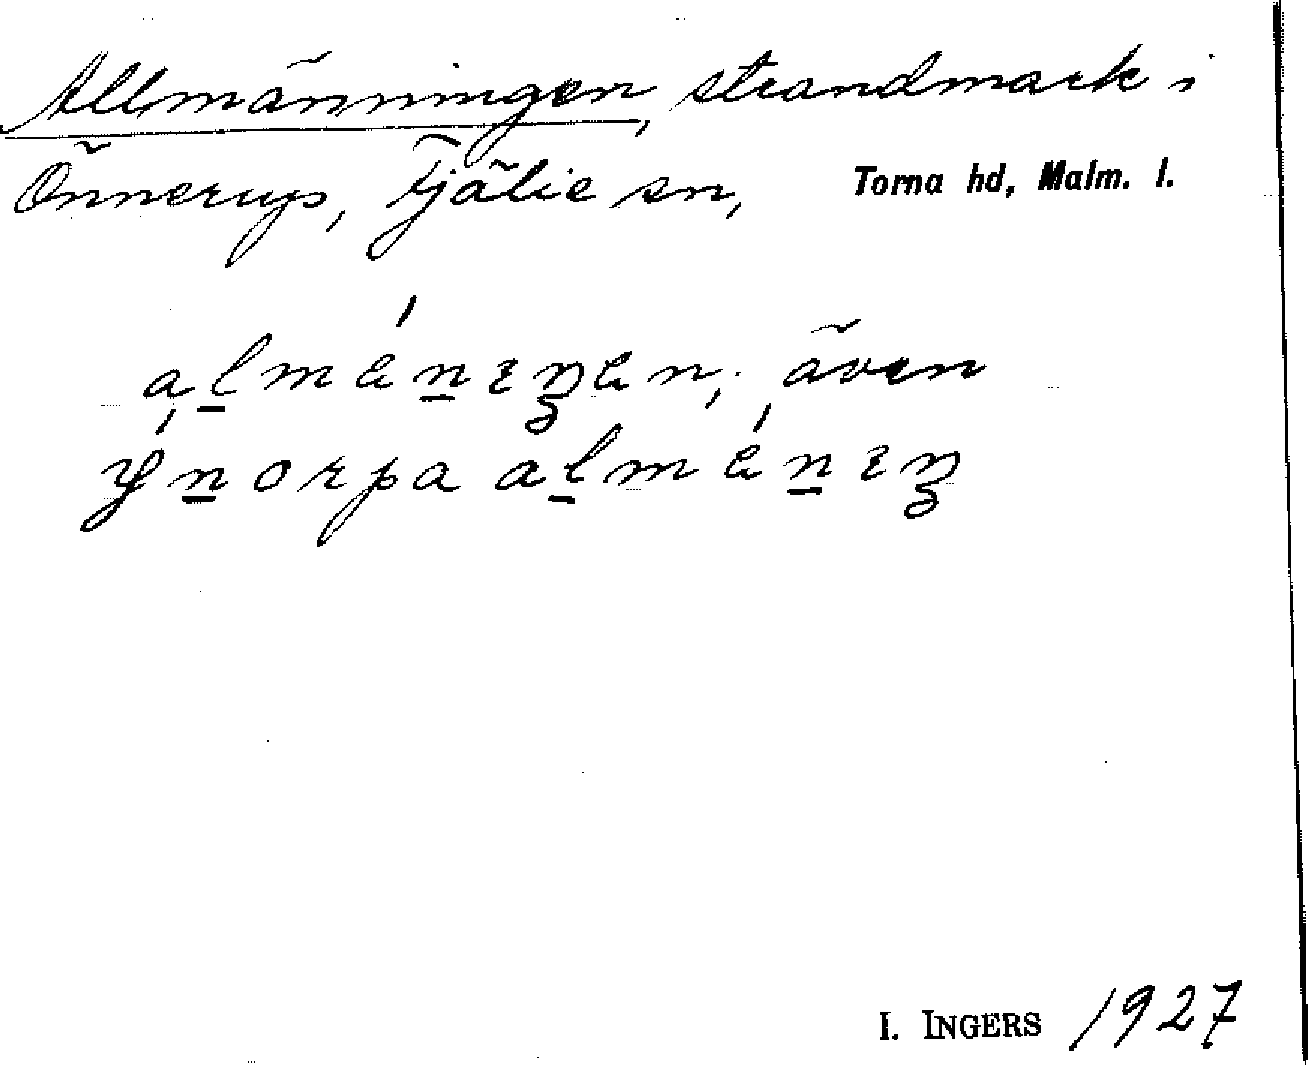 Allmänningen, strandmark i
Önnerup, Fjälie sn, Torna hd, Malm. l.
al̲mán̲ɪŋən, även
ýn̲orpa al̲mán̲ɪŋ
I. INGERS 1927